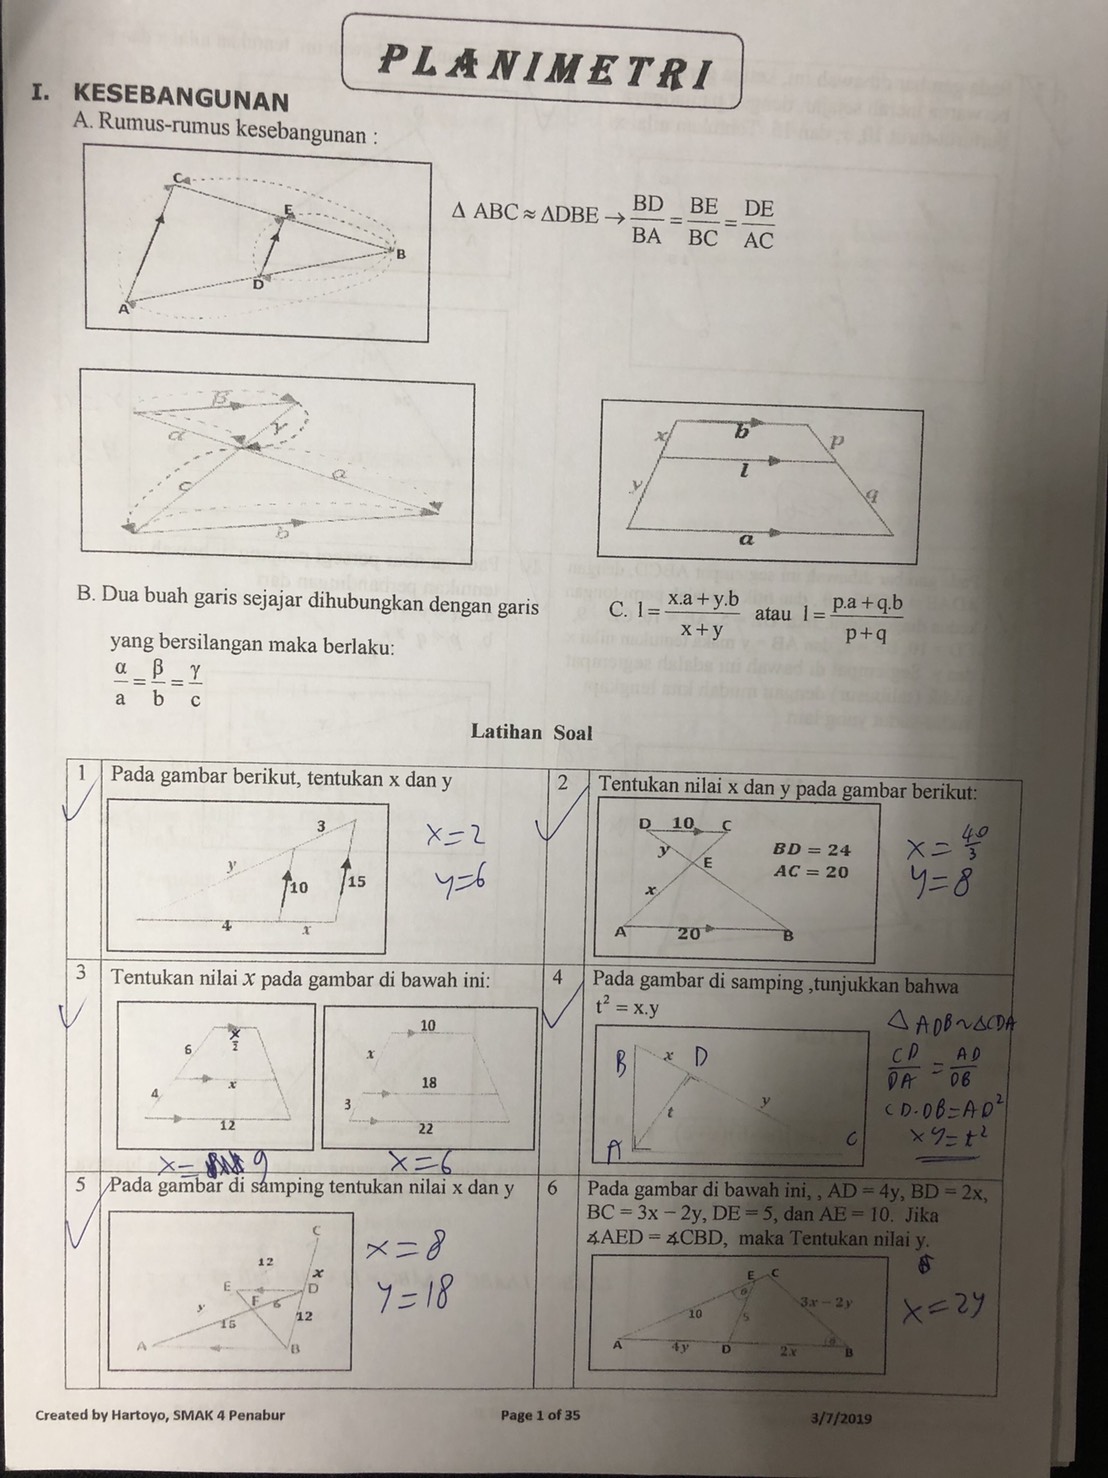 PLANIMETRI
I. KESEBANGUNAN
A. Rumus-rumus kesebangunan :
C
E
B
D
A
Δ ABC ≈ ΔDBE → BD/BA = BE/BC = DE/AC
β
α
γ
a
c
b
x
b
p
l
y
q
a
B. Dua buah garis sejajar dihubungkan dengan garis
yang bersilangan maka berlaku:
α/a = β/b = γ/c
C. l = x.a + y.b / x + y atau l = p.a + q.b / p + q
Latihan Soal
1 Pada gambar berikut, tentukan x dan y
3
y
10
15
4
x
x = 2
y = 6
2 Tentukan nilai x dan y pada gambar berikut:
D 10 C
y
E
x
A 20 B
BD = 24
AC = 20
x = 40/3
y = 8
3 Tentukan nilai x pada gambar di bawah ini:
x/2
6
x
4
12
10
x
18
3
22
x = 9
x = 6
4 Pada gambar di samping ,tunjukkan bahwa
t² = x.y
B x D
t
y
A
C
Δ ADB ~ ΔCDA
CD/DA = AD/DB
CD.DB = AD²
xy = t²
5 Pada gambar di samping tentukan nilai x dan y
C
12
x
E
D
F 6
y
15
12
A
B
x = 8
y = 18
6 Pada gambar di bawah ini, , AD = 4y, BD = 2x,
BC = 3x – 2y, DE = 5, dan AE = 10. Jika
∡AED = ∡CBD, maka Tentukan nilai y.
E C
10
5
3x – 2y
A 4y D 2x B
x = 2y
Created by Hartoyo, SMAK 4 Penabur
Page 1 of 35
3/7/2019